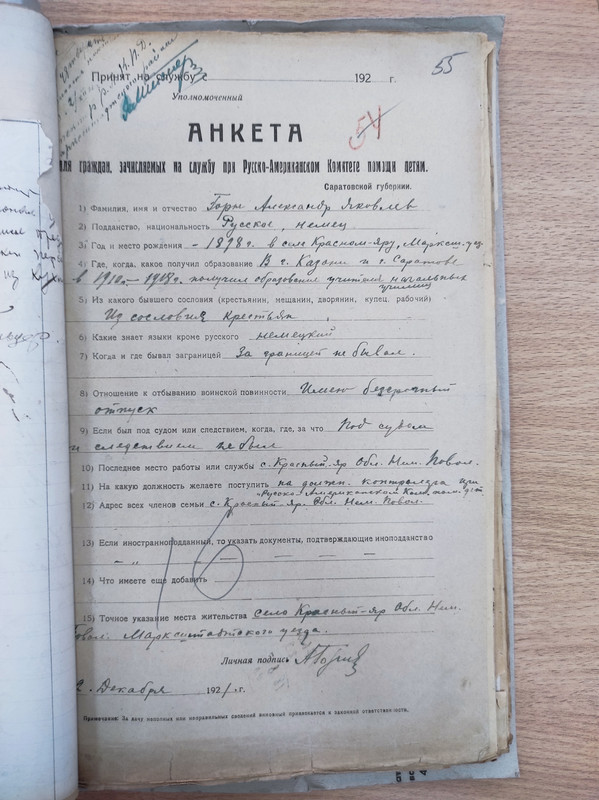 55
Принят на службу 192 г.
Уполномоченный
54
АНКЕТА
для граждан, зачисляемых на службу при Русско-Американском Комитете помощи детям.
Саратовской губернии.
1) Фамилия, имя и отчество Горн Александр Яковлев
2) Подданство, национальность Русское, немец
3) Год и место рождения – 1898 г. в селе Красном-Яру, Марксшт. уез.
4) Где, когда, какое получил образование В г. Казани и г. Саратове
в 1910 – 1918 г. получил образование учителя начальных
училищ
5) Из какого бывшего сословия (крестьянин, мещанин, дворянин, купец, рабочий)
Из сословия крестьян
6) Какие знает языки кроме русского немецкий
7) Когда и где бывал заграницей За границей не бывал.
8) Отношение к отбыванию воинской повинности. Имею безсрочный
отпуск
9) Если был под судом или следствием, когда, где, за что Под судом
и следствием не был
10) Последнее место работы или службы с. Красный-яр Обл. Нем. Повол.
11) На какую должность желаете поступить на должн. контролера при
Русско-Американском Ком. пом. дет.
12) Адрес всех членов семьи с. Красный-яр. Обл. Нем. Повол.
13) Если иностранноподданный, то указать документы, подтверждающие иноподданство
14) Что имеете еще добавить
16
15) Точное указание места жительства село Красный-яр Обл. Нем.
Повол. Марксштадтского уезда.
Личная подпись
2. Декабря 1921 г.
Примечание: За дачу неполных или неправильных сведений виновный привлекается к законной ответственности.